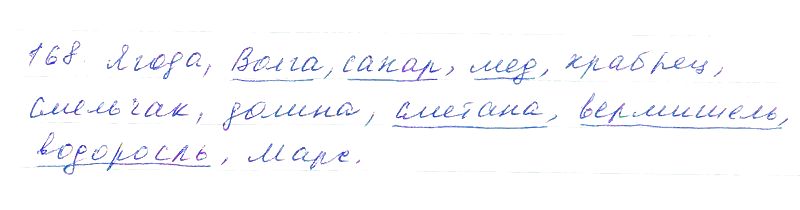 168. Ягода, Волга, сахар, мед, храбрец,
смельчак, долина, сметана, вермишель,
водоросль, Марс.